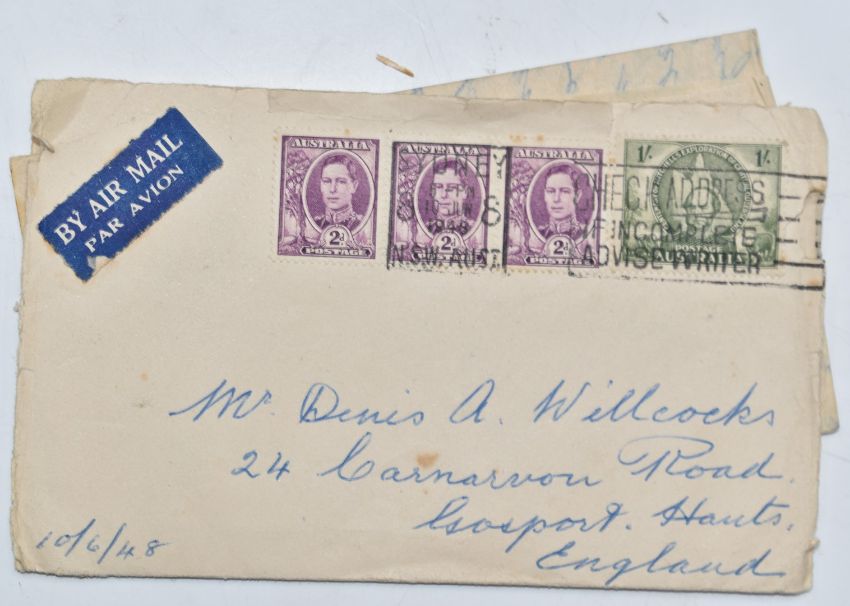 BY AIR MAIL
PAR AVION
AUSTRALIA
2D
POSTAGE
AUSTRALIA
2D
AUSTRALIA
2D
POSTAGE
1/- 1/-
POSTAGE
AUSTRALIA
SYDNEY
1948
N.S.W. AUST
CHECK ADDRESS
IF INCOMPLETE
ADVISE WRITER
Mr. Denis A. Willcocks
24 Carnarvon Road.
Gosport. Hants.
England
10/6/48